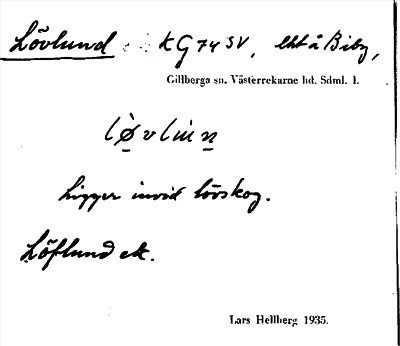 Lövlund KG 74 SV, lht å Biby,
Gillberga sn. Västerrekarne hd. Sdml. l.
lø̱̀vlùṉ
Ligger invid lövskog.
Löflund ek.
Lars Hellberg 1935.